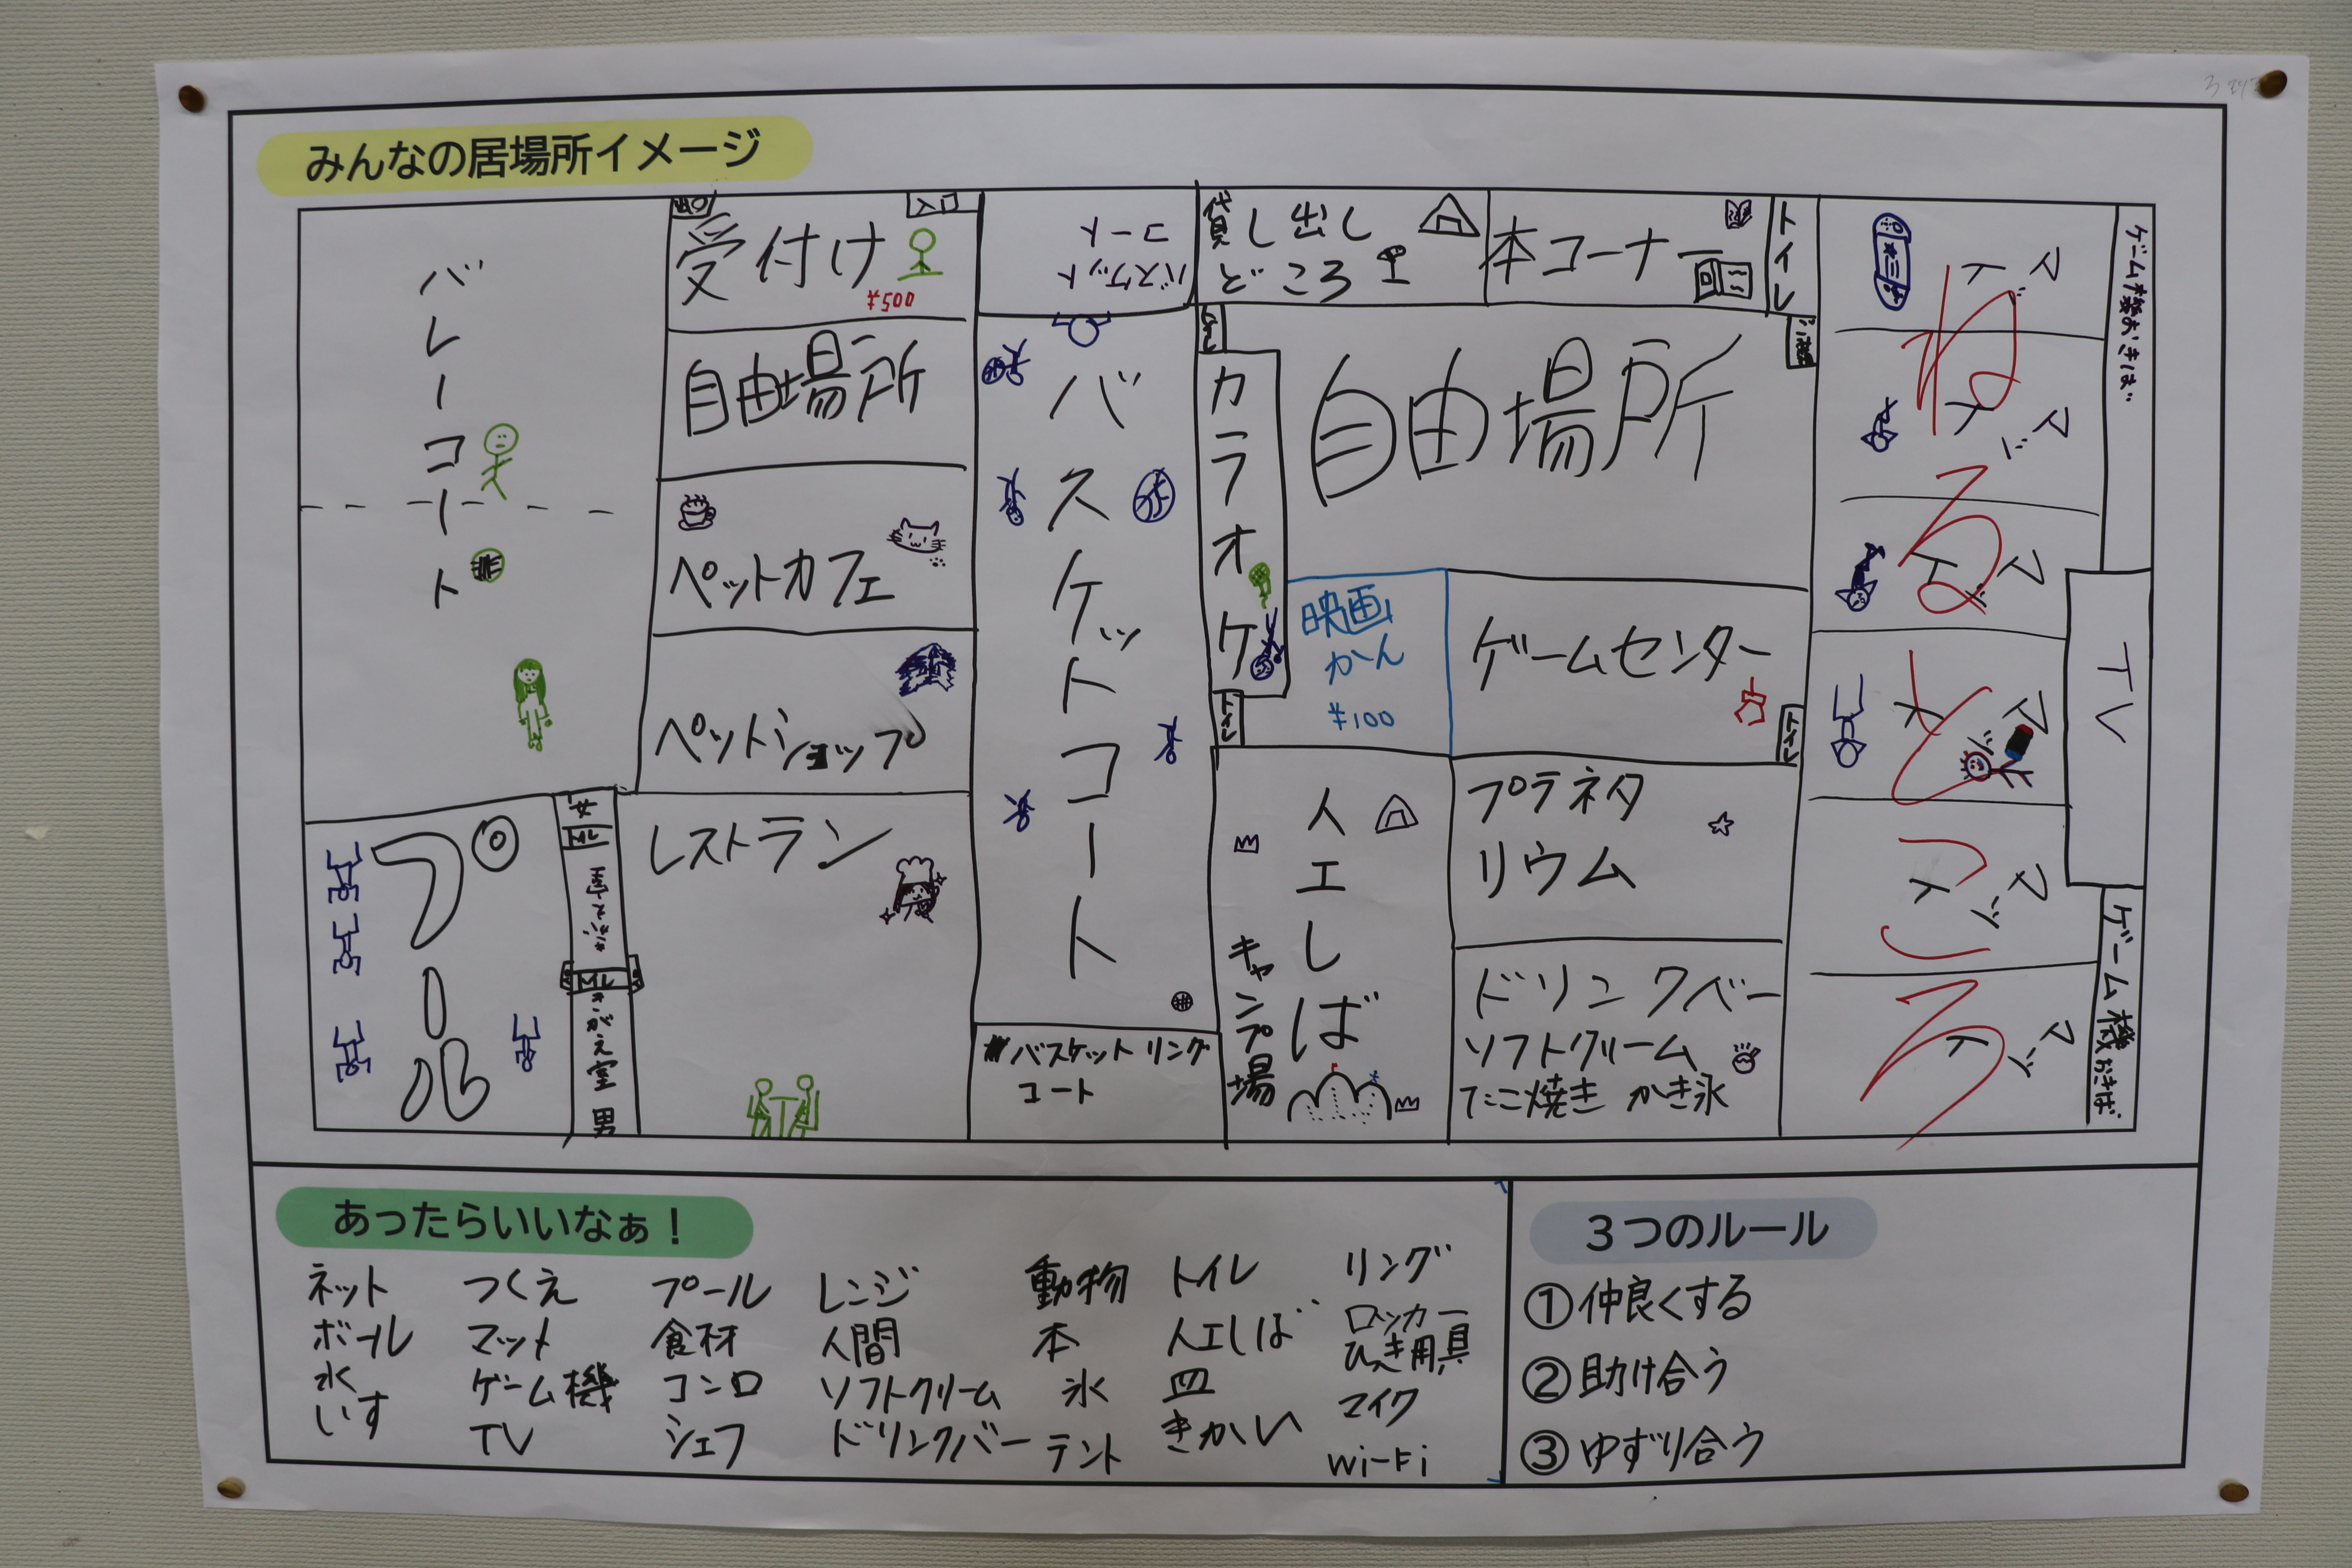 みんなの居場所イメージ
バレーコート
受付け
入口
¥500
自由場所
ペットカフェ
ペットショップ
レストラン
プール
女
きがえ室
男
バスケット
コート
バスケットコート
バスケットリング
コート
貸し出し
どころ
本コーナー
トイレ
カラオケ
トイレ
自由場所
映画
かん
¥100
ゲームセンター
トイレ
人工しば
キャンプ場
プラネタ
リウム
ドリンクバー
ソフトクリーム
たこ焼き かき氷
ねるところ
マド
マド
マド
マド
マド
ゲーム機おきば
TV
ゲーム機おきば
あったらいいなぁ！
ネット
ボール
水
いす
つくえ
マット
ゲーム機
TV
プール
食材
コンロ
シェフ
レンジ
人間
ソフトクリーム
ドリンクバー
動物
本
氷
テント
トイレ
人工しば
皿
きかい
リング
ロッカー
ひっき用具
マイク
Wi-Fi
3つのルール
①仲良くする
②助け合う
③ゆずり合う